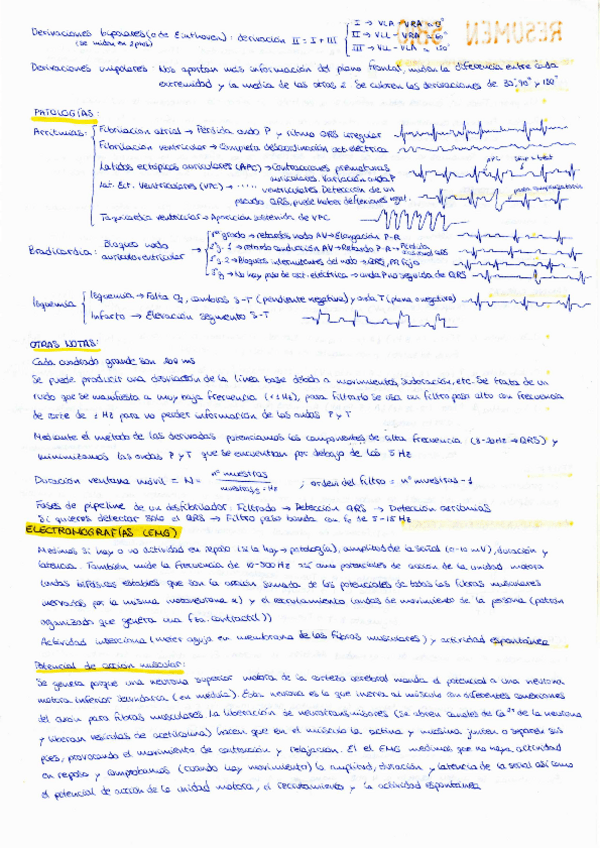 RESUMEN
Derivaciones bipolares (o de Einthoven): derivación II = I + III { I → VLA - VRA
(se miden en 2 planos) II → VLL - VRA
III → VLL - VLA
Derivaciones unipolares: Nos aportan más información del plano frontal, miden la diferencia entre cada
extremidad y la media de las otras 2. Se cubren las derivaciones de 30°, 90° y 150°
PATOLOGÍAS:
Arritmias: Fibrilación atrial → Pérdida onda P y ritmo QRS irregular
Fibrilación ventricular → Completa descoordinación act. eléctrica
Latidos ectópicos auriculares (APC) → Contracciones prematuras
auriculares. Variación onda P
Lat. Ect. Ventriculares (VPC) → ..... ventriculares. Detección de un
QRS, puede haber deflexiones negat.
Taquicardia ventricular → Aparición sostenida de VPC
Bradicardia: Bloqueo nodo → 1er grado → retardos nodo AV → Elongación P-R
auriculoventricular 2°g. 1 → retardo conducción AV → Retardo P-R →
2°g 2 → Bloqueos intermitentes del nodo → QRS, PR fijo
3°g → No hay paso de act. eléctrica → onda P no seguida de QRS
Isquemia { Isquemia → Falta O₂, cambios S-T (pendiente negativa) y onda T (plana o negativa)
Infarto → Elevación segmento S-T
OTRAS NOTAS:
Cada cuadrado grande son 200 ms
Se puede producir una desviación de la línea base debido a movimientos, sudoración, etc. Se trata de un
ruido que se manifiesta a muy baja frecuencia (<1Hz), para filtrarlo se usa un filtro paso alto con frecuencia
de corte de 1 Hz para no perder información de las ondas P y T
Mediante el método de las derivadas potenciamos las componentes de alta frecuencia (8-20Hz → QRS) y
minimizamos las ondas P y T que se encuentran por debajo de los 5 Hz
Duración ventana móvil = N = nº muestras ; orden del filtro = nº muestras - 1
Fases de pipeline de un desfibrilador: Filtrado → Detección QRS → Detección arritmias
Si quieres detectar solo el QRS → Filtro paso banda con fc de 5-15 Hz
ELECTROMIOGRAFÍAS (EMG)
Medimos si hay o no actividad en reposo (si la hay → patología), amplitud de la señal (0-10 mV), duración y
latencia. También mide la frecuencia de 10-500 Hz así como potenciales de acción de la unidad motora
(ondas bifásicas estables que son la acción sumada de los potenciales de todas las fibras musculares
inervadas por la misma motoneurona α) y el reclutamiento (ondas de movimiento de la persona (patrón
organizado que genera una fza. contractil))
Actividad insercional (meter aguja en membrana de las fibras musculares) y actividad espontánea
Potencial de acción muscular:
Se genera porque una neurona superior motora de la corteza cerebral manda el potencial a una neurona
motora inferior secundaria (en médula). Esta neurona es la que inerva al músculo con diferentes conexiones
del axón para fibras musculares. La liberación de neurotransmisores (Se abren canales de Ca²⁺ de la neurona
y liberan vesículas de acetilcolina) hacen que en el músculo la actina y miosina junten o separen sus
provocando el movimiento de contracción y relajación. El el EMG medimos que no haya actividad
en reposo y comprobamos (cuando hay movimiento) la amplitud, duración y latencia de la señal así como
el potencial de acción de la unidad motora, el reclutamiento y la actividad espontánea